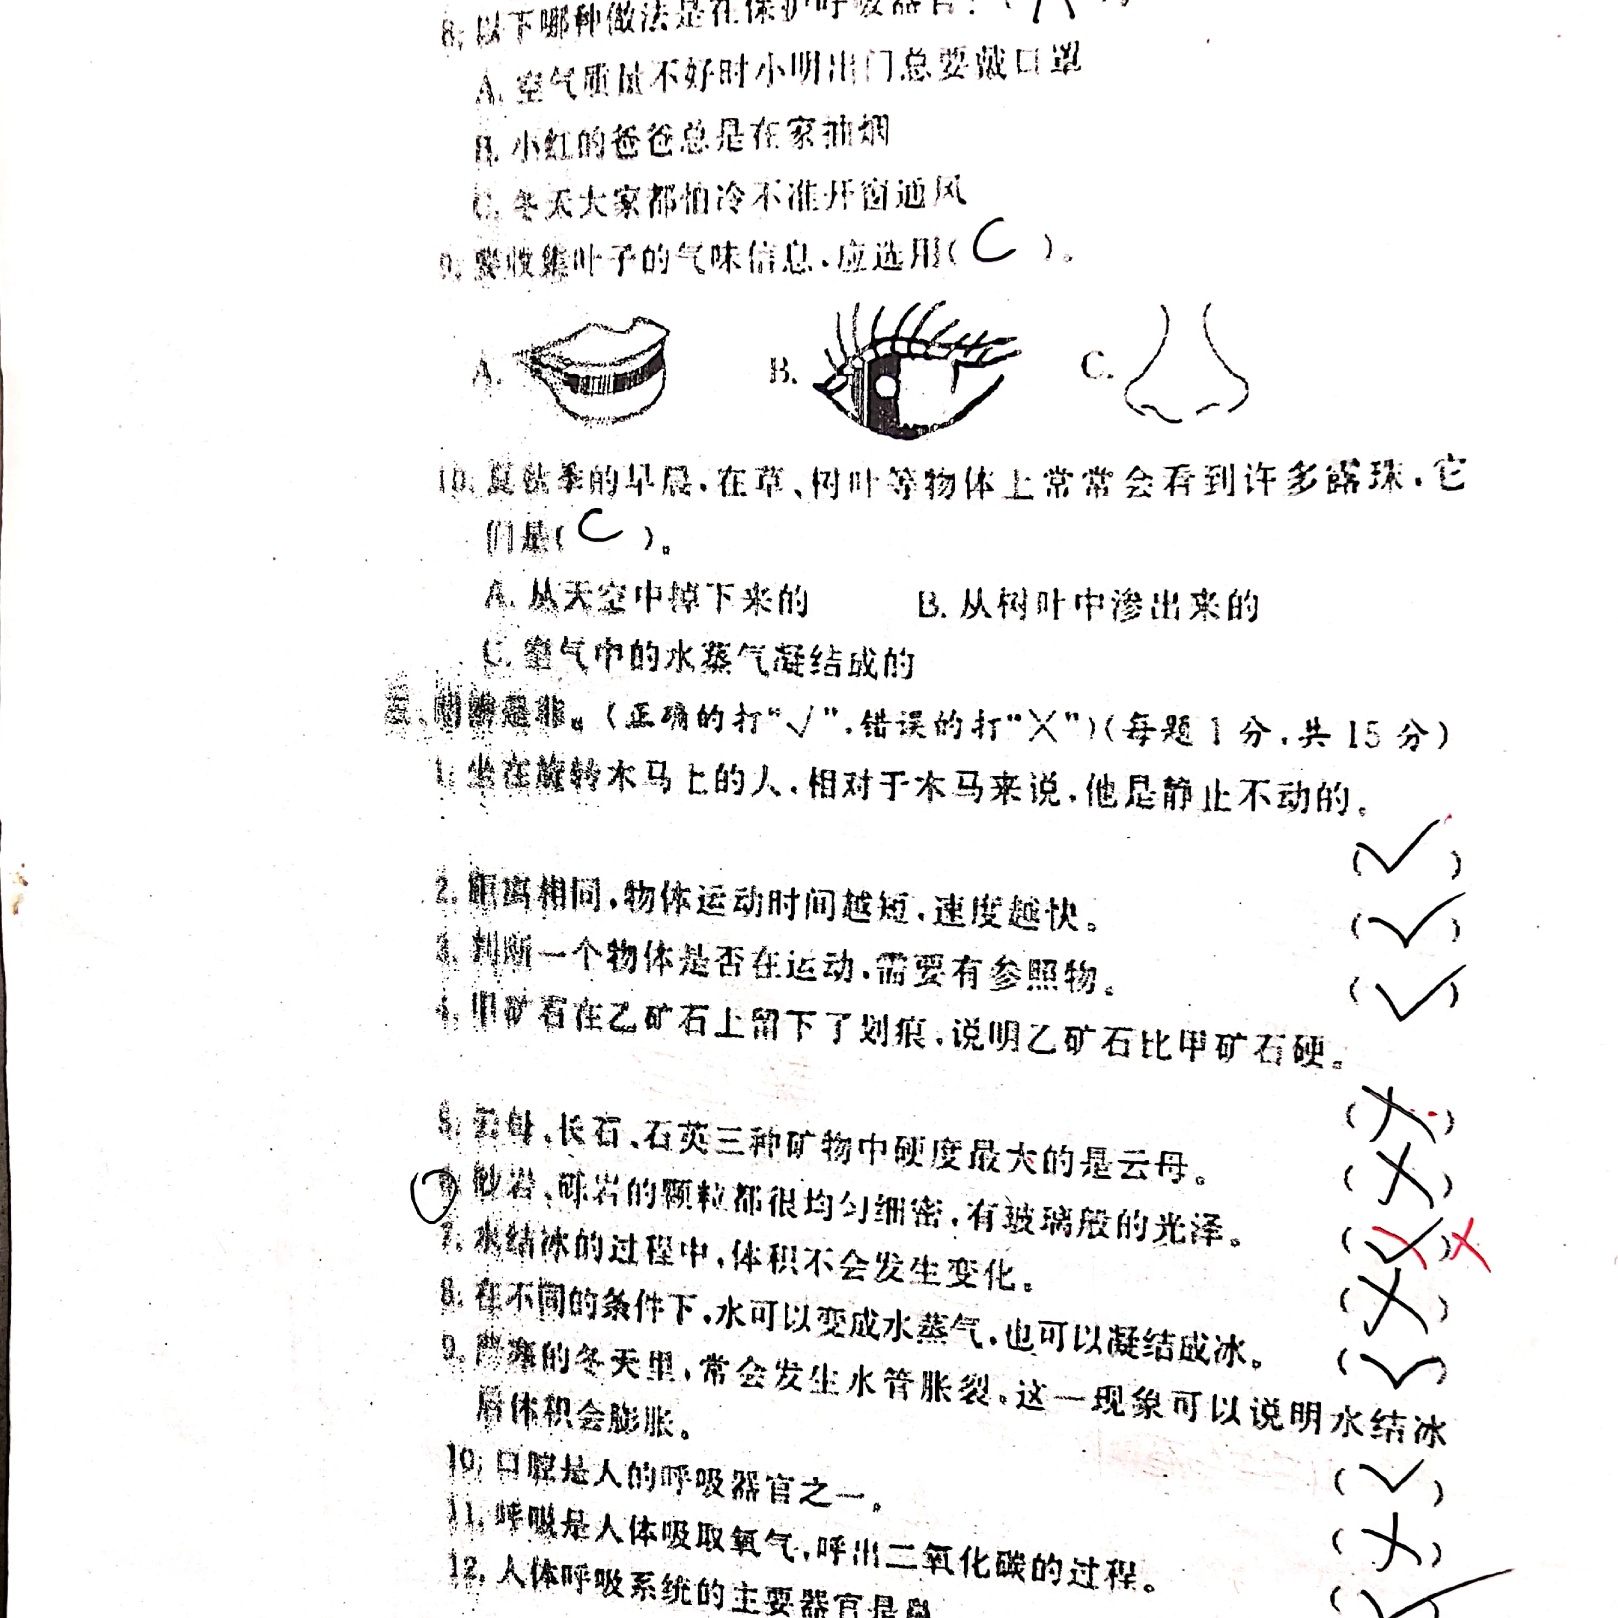 8. 以下哪种做法是在保护呼吸器官?( A )
A. 空气质量不好时小明出门总要戴口罩
B. 小红的爸爸总是在家抽烟
C. 冬天大家都怕冷不准开窗通风
9. 要收集叶子的气味信息,应选用( C )。
A. B. C.
10. 夏秋季的早晨,在草、树叶等物体上常常会看到许多露珠,它
们是( C )。
A. 从天空中掉下来的 B. 从树叶中渗出来的
C. 空气中的水蒸气凝结成的
三、明辨是非。(正确的打“√”,错误的打“X”)(每题 1 分,共 15 分)
1. 坐在旋转木马上的人,相对于木马来说,他是静止不动的。
(√)
2. 距离相同,物体运动时间越短,速度越快。 (√)
3. 判断一个物体是否在运动,需要有参照物。 (√)
4. 甲矿石在乙矿石上留下了划痕,说明乙矿石比甲矿石硬。
(X)
5. 云母、长石、石英三种矿物中硬度最大的是云母。 (X)
6. 砂岩、砾岩的颗粒都很均匀细密,有玻璃般的光泽。 (√) X
7. 水结冰的过程中,体积不会发生变化。 (X)
8. 在不同的条件下,水可以变成水蒸气,也可以凝结成冰。 (√)
9. 严寒的冬天里,常会发生水管胀裂。这一现象可以说明水结冰
后体积会膨胀。 (√)
10. 口腔是人的呼吸器官之一。 (X)
11. 呼吸是人体吸取氧气,呼出二氧化碳的过程。 (√)
12. 人体呼吸系统的主要器官是鼻